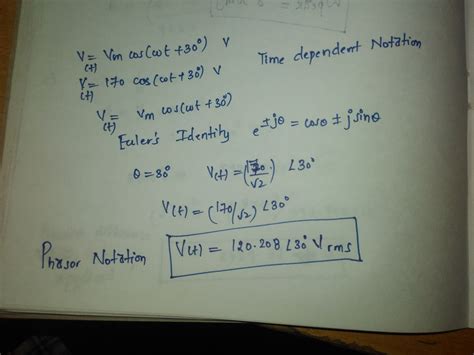 V(t) = Vm cos(ωt+30°) V Time dependent Notation
V(t) = 170 cos(ωt+30°) V
V(t) = Vm cos(ωt+30°)
Euler's Identity e^±jθ = cosθ ± j sinθ
θ = 30° V(t) = (170/√2) ∠30°
V(t) = (170/√2) ∠30°
Phasor Notation V(t) = 120.208 ∠30° V rms